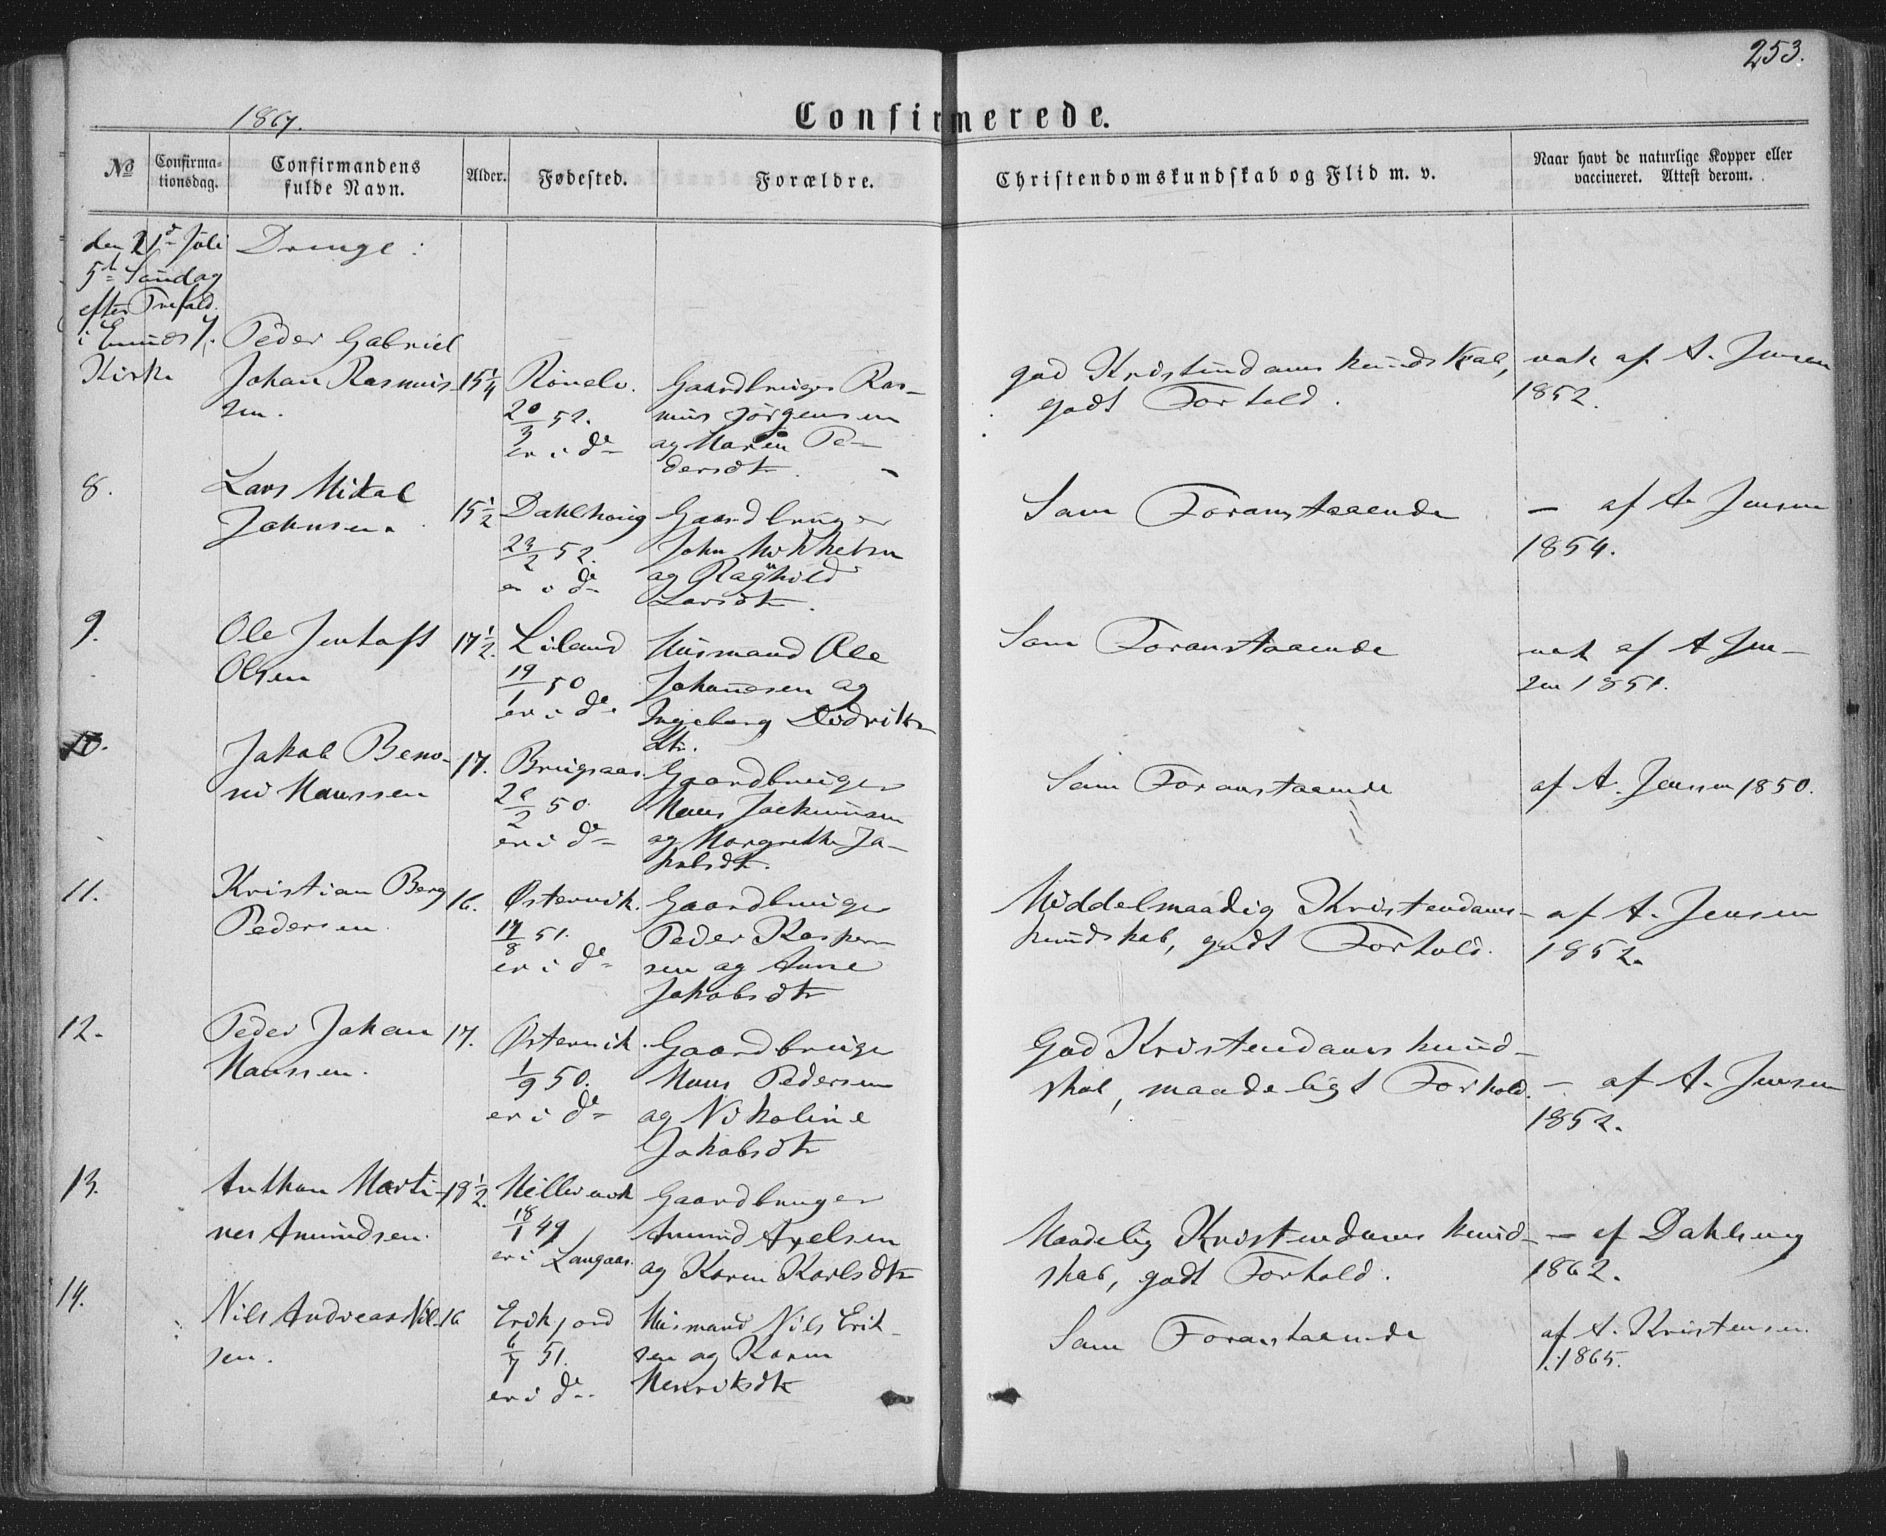 253.
1867.
Confirmerede.
No
Confirma-
tionsdag.
Confirmandens
fulde Navn.
Alder.
Fødested.
Forældre.
Christendomskundskab og Flid m. v.
Naar havt de naturlige Kopper eller
vaccineret. Attest derom.
den 21d Juli
5t Søndag
efter Trefold.
i
Kirke
Drenge:
7. Peder Gabriel
Johan Rasmus
sen.
15 1/4
20/3 52.
er i do
Gaardbruger Ras-
mus Jørgensen
og Maren Pe-
dersdtr
god Kristendomskundskab,
godt Forhold.
vak af A. Jensen
1852.
8.
Lars Mikal
Johnsen
15 1/2
Dahlhoug
23/2 52.
er i do
Gaardbruger
John Mikkelsen
og Ragnhild
Larsdtr.
Som Foranstaaende
— af A. Jensen
1854.
9.
Ole Jentoft
Olsen
17 1/2
Liland
19/1 50
er i do
Husmand Ole
Johannesen og
Ingeborg Didriks
dtr.
Som Foranstaaende
vak af A Jen-
sen 1851.
10.
Jakob Beno-
ni Hanssen
17.
50
er i do
Gaardbruger
Hans Joakimsen
og Margrethe Ja-
kobsdtr.
Som Foranstaaende
af A. Jensen 1850.
11.
Kristian Berg
Pedersen
16.
Østervik.
17/8 51.
er i do
Gaardbruger
Peder Kasper
sen og Anne
Jakobsdtr
Middelmaadig Kristendoms-
kundskab, godt Forhold.
af A. Jensen
1852.
12.
Peder Johan
Hanssen.
17.
Østervik
1/9 50.
er i do
Gaardbruger
Hans Pedersen
og Nikoline
Jakobsdtr
God Kristendomskund-
skab, maadeligt Forhold.
— af A. Jensen
1852.
13.
Anthon Marti-
nus Amundsen.
18 1/2
18/1 49
er i Langaas.
Gaardbruger
Amund Axelsen
og Karen Karlsdtr
Maadelig Kristendomskund-
skab, godt Forhold.
— af Dahlseng
1862.
14.
Nils Andreas Nil-
sen.
16
Erikjord
6/7 51.
er i do
Husmand Nils Erik-
sen og Karen
Henriksdtr
Som Foranstaaende
af A. Kristensen
1865.